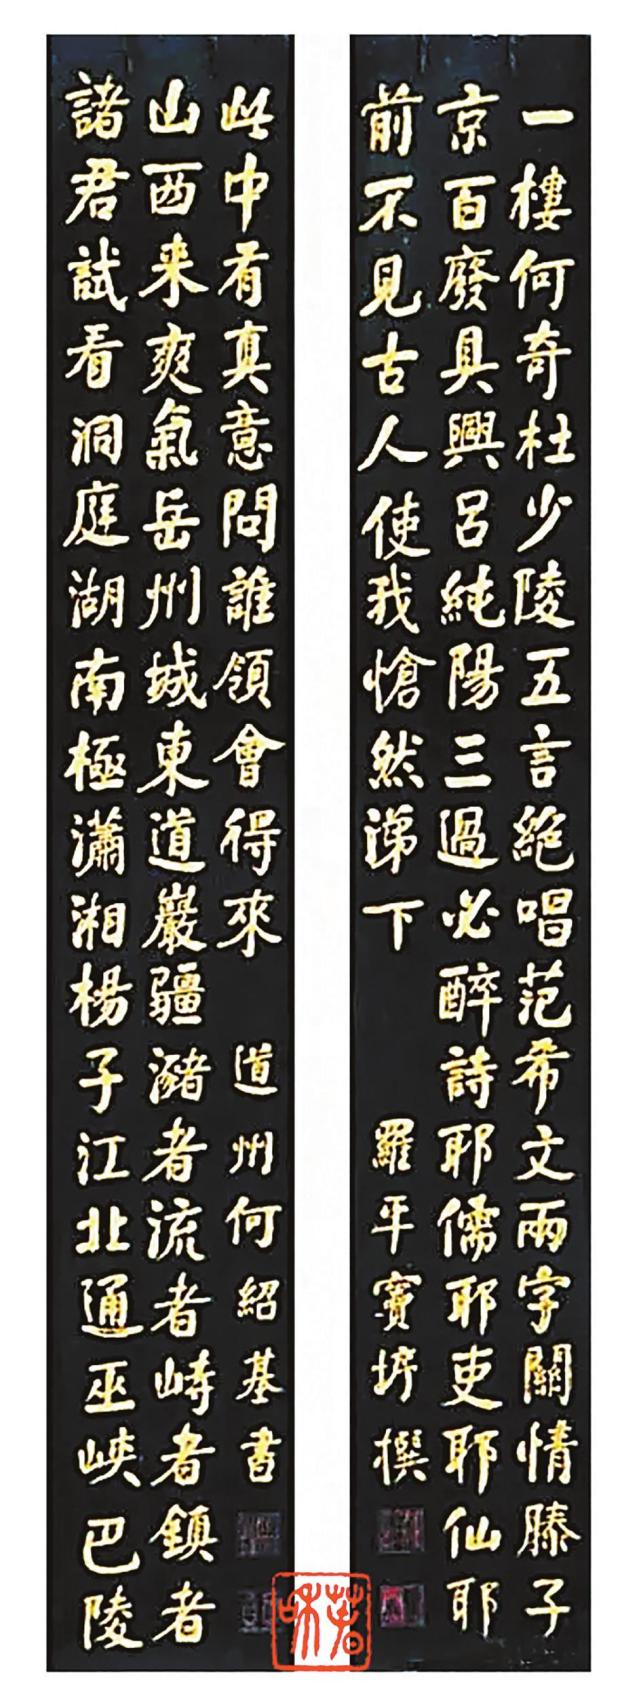 一樓何奇杜少陵五言絶唱范希文兩字關情滕子
京百廢具興呂純陽三過必醉詩耶儒耶吏耶仙耶
前不見古人使我愴然涕下 羅平竇垿撰
諸君試看洞庭湖南極瀟湘楊子江北通巫峽巴陵
山西来爽氣岳州城東道巖疆瀦者流者峙者鎮者
此中有真意問誰領會得來 道州何紹基書